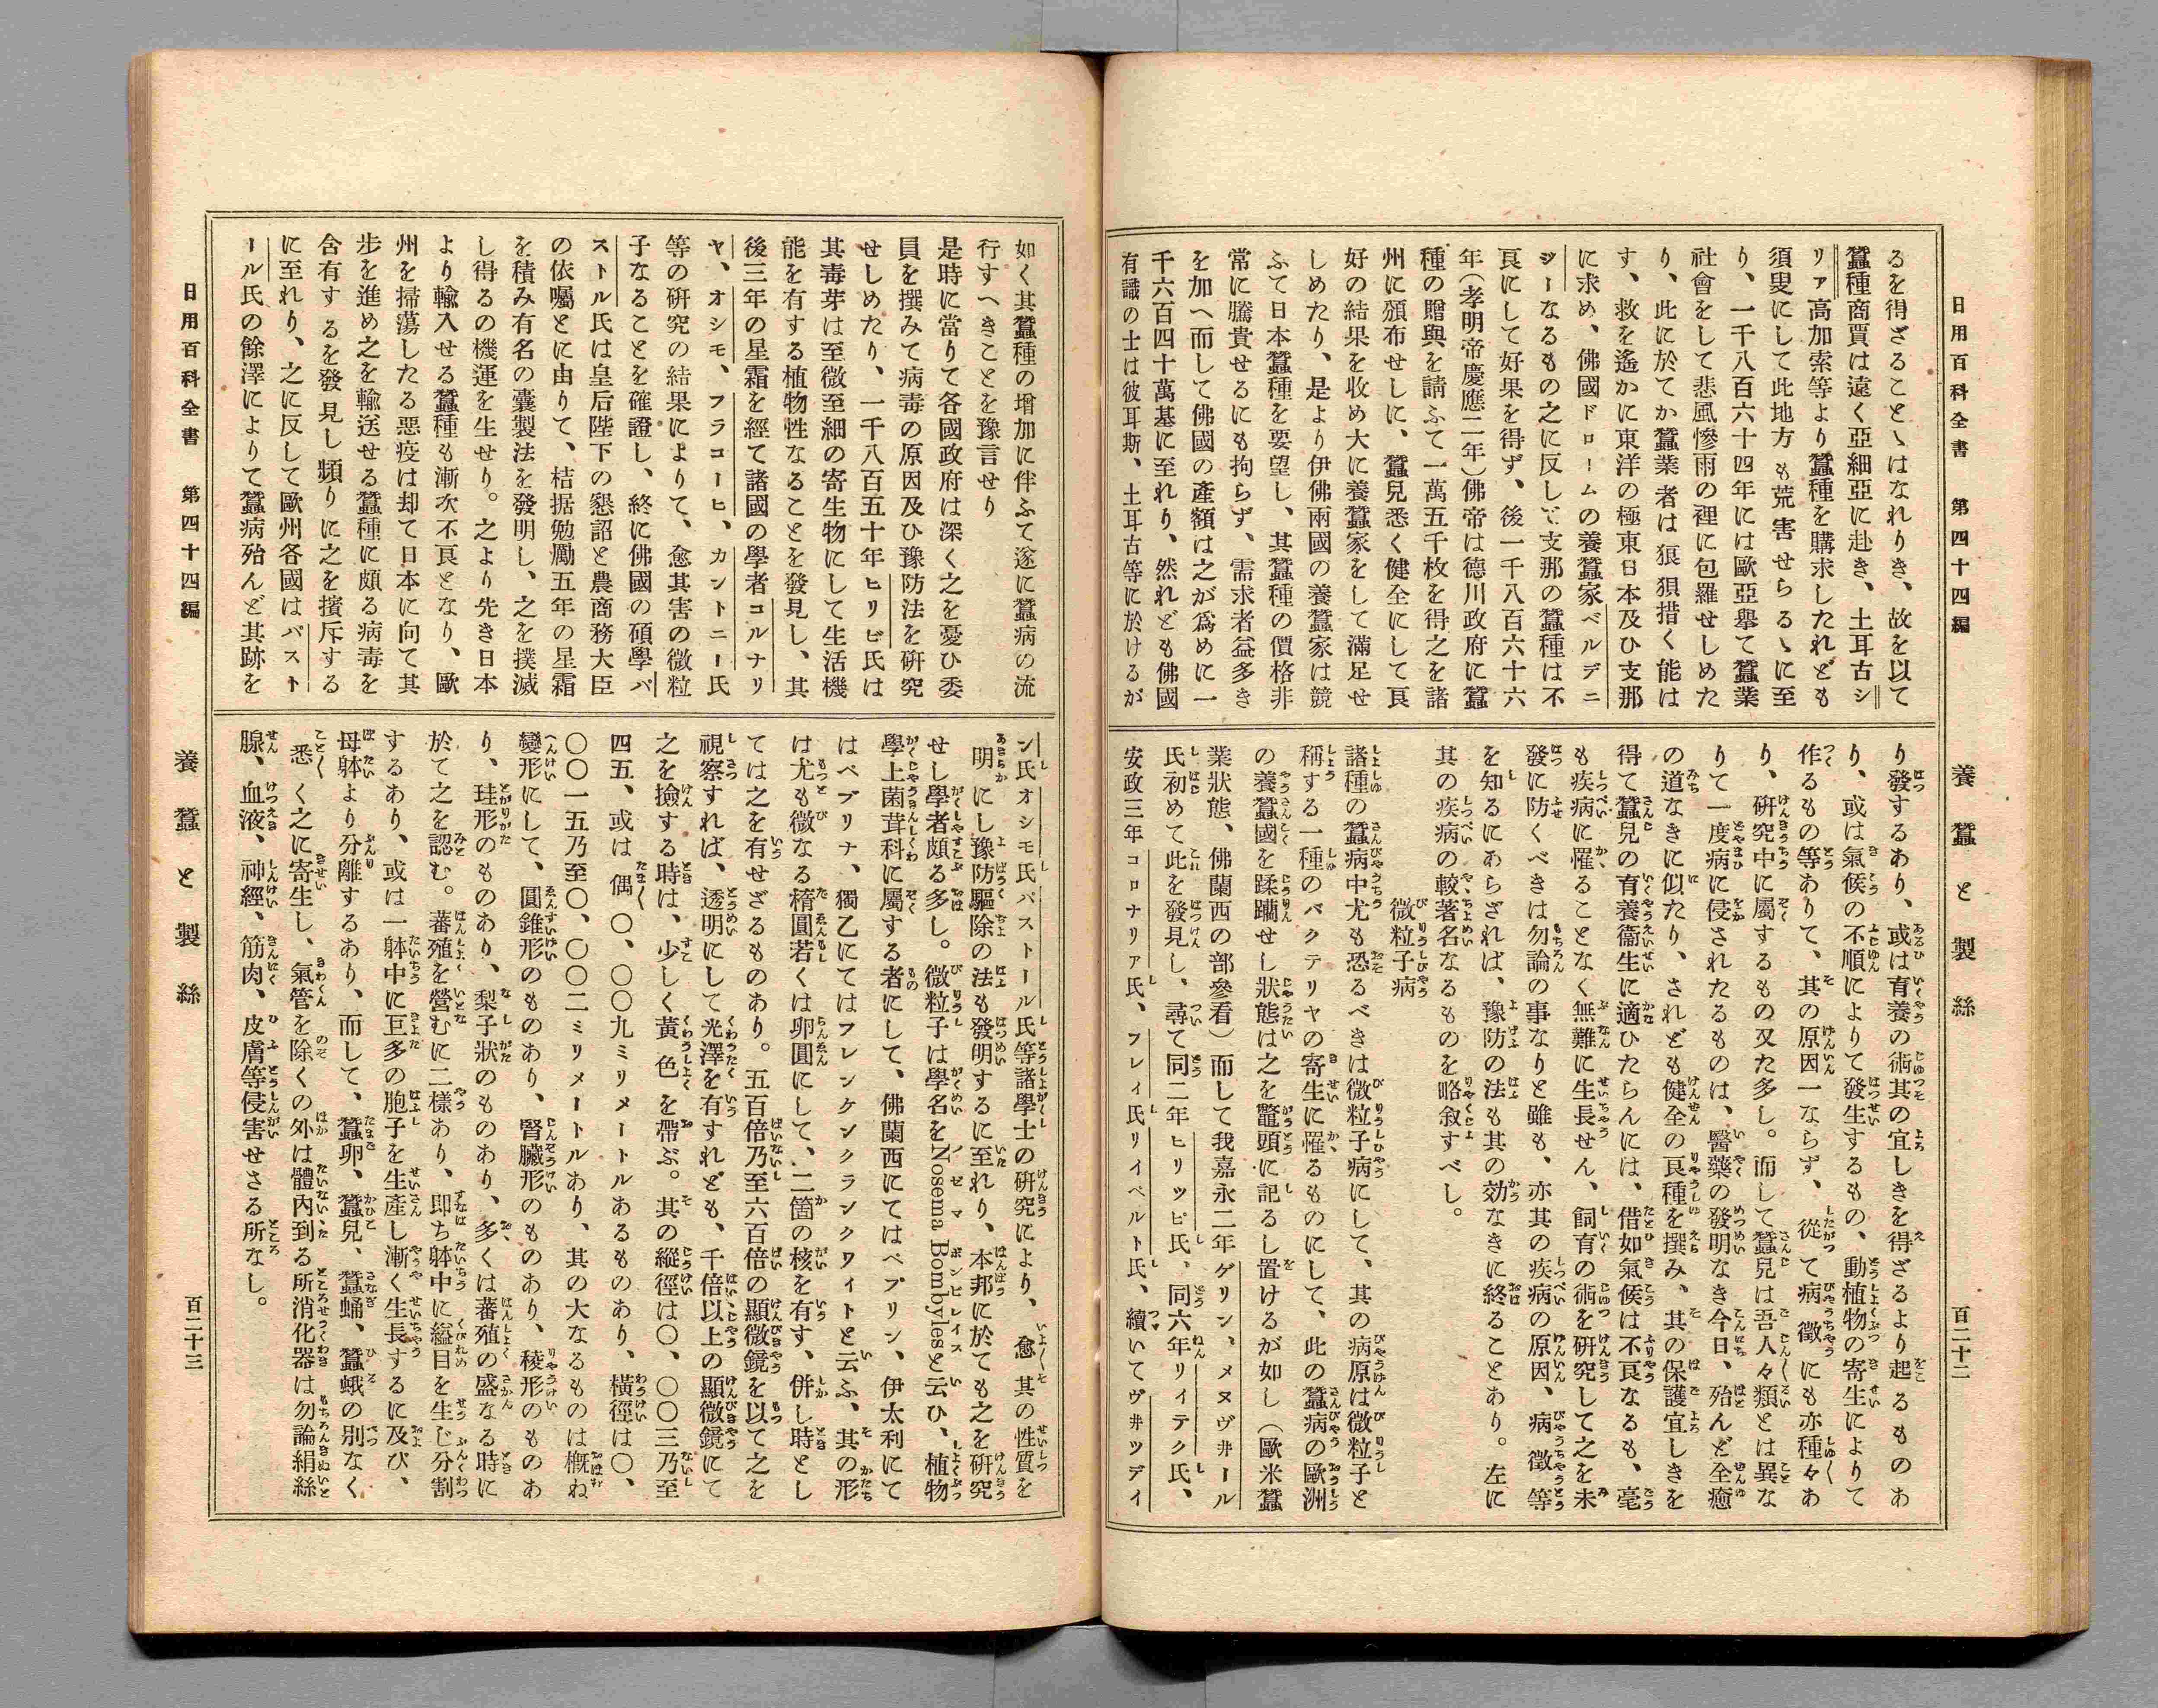 日用百科全書　第四十四編
養蠶と製絲
百二十二
るを得ざることゝはなれりき、故を以て
蠶種商賈は遠く亞細亞に赴き、土耳古シ
リァ高加索等より蠶種を購求したれども
須臾にして此地方も荒害せらるゝに至
り、一千八百六十四年には歐亞擧て蠶業
社會をして悲風慘雨の裡に包羅せしめた
り、此に於てか蠶業者は狼狽措く能は
す、救を遙かに東洋の極東日本及ひ支那
に求め、佛國ドロームの養蠶家ベルデニ
ジーなるもの之に反して支那の蠶種は不
良にして好果を得ず、後一千八百六十六
年(孝明帝慶應二年)佛帝は德川政府に蠶
種の贈與を請ふて一萬五千枚を得之を諸
州に頒布せしに、蠶兒悉く健全にして良
好の結果を收め大に養蠶家をして滿足せ
しめたり、是より伊佛兩國の養蠶家は競
ふて日本蠶種を要望し、其蠶種の價格非
常に騰貴せるにも拘らず、需求者益多き
を加へ而して佛國の產額は之が爲めに一
千六百四十萬基に至れり、然れども佛國
有識の士は彼耳斯、土耳古等に於けるが
り發するあり、或は育養の術其の宜しきを得ざるより起るものあ
り、或は氣候の不順によりて發生するもの、動植物の寄生によりて
作るもの等ありて、其の原因一ならず、從て病徵にも亦種々あ
り、硏究中に屬するもの又た多し。而して蠶兒は吾人々類とは異な
りて一度病に侵されたるものは、醫藥の發明なき今日、殆んど全癒
の道なきに似たり、されども健全の良種を撰み、其の保護宜しきを
得て蠶兒の育養衞生に適ひたらんには、借如氣候は不良なるも、毫
も疾病に罹ることなく無難に生長せん、飼育の術を硏究して之を未
發に防くべきは勿論の事なりと雖も、亦其の疾病の原因、病徵等
を知るにあらざれば、豫防の法も其の効なきに終ることあり。左に
其の疾病の較著名なるものを略敘すべし。
微粒子病
諸種の蠶病中尤も恐るべきは微粒子病にして、其の病原は微粒子と
稱する一種のバクテリヤの寄生に罹るものにして、此の蠶病の歐洲
の養蠶國を蹂躪せし狀態は之を鼇頭に記るし置けるが如し(歐米蠶
業狀態、佛蘭西の部參看)而して我嘉永二年ゲリン、メヌヴ井ール
氏初めて此を發見し、尋て同二年ヒリッピ氏、同六年リィテク氏、
安政三年コロナリァ氏、フレィ氏リイベルト氏、續いてヴ井ツデイ
如く其蠶種の增加に伴ふて遂に蠶病の流
行すへきことを豫言せり
是時に當りて各國政府は深く之を憂ひ委
員を撰みて病毒の原因及ひ豫防法を硏究
せしめたり、一千八百五十年ヒリビ氏は
其毒芽は至微至細の寄生物にして生活機
能を有する植物性なることを發見し、其
後三年の星霜を經て諸國の學者コルナリ
ヤ、オシモ、フラコーヒ、カントニー氏
等の硏究の結果によりて、愈其害の微粒
子なることを確證し、終に佛國の碩學パ
ストル氏は皇后陛下の懇詔と農商務大臣
の依囑とに由りて、拮据勉勵五年の星霜
を積み有名の囊製法を發明し、之を撲滅
し得るの機運を生せり。之より先き日本
より輸入せる蠶種も漸次不良となり、歐
州を掃蕩したる惡疫は却て日本に向て其
步を進め之を輸送せる蠶種に頗る病毒を
含有するを發見し頻りに之を擯斥する
に至れり、之に反して歐州各國はパスト
ール氏の餘澤によりて蠶病殆んど其跡を
ン氏オシモ氏パストール氏等諸學士の硏究により、愈其の性質を
明にし豫防驅除の法も發明するに至れり、本邦に於ても之を硏究
せし學者頗る多し。微粒子は學名をNosema Bombylesと云ひ、植物
學上菌茸科に屬する者にして、佛蘭西にてはペプリン、伊太利にて
はペブリナ、獨乙にてはフレンケンクランクワィトと云ふ、其の形
は尤も微なる楕圓若くは卵圓にして、二箇の核を有す、併し時とし
ては之を有せざるものあり。五百倍乃至六百倍の顯微鏡を以て之を
視察すれば、透明にして光澤を有すれども、千倍以上の顯微鏡にて
之を撿する時は、少しく黃色を帶ぶ。其の縱徑は〇、〇〇三乃至
四五、或は偶〇、〇〇九ミリメートルあるものあり、橫徑は〇、
〇〇一五乃至〇、〇〇二ミリメートルあり、其の大なるものは槪ね
變形にして、圓錐形のものあり、腎臟形のものあり、稜形のものあ
り、珪形のものあり、梨子狀のものあり、多くは蕃殖の盛なる時に
於て之を認む。蕃殖を營むに二樣あり、卽ち躰中に縊目を生じ分割
するあり、或は一躰中に巨多の胞子を生產し漸く生長するに及び、
母躰より分離するあり、而して、蠶卵、蠶兒、蠶蛹、蠶蛾の別なく
悉く之に寄生し、氣管を除くの外は體內到る所消化器は勿論絹絲
腺、血液、神經、筋肉、皮膚等侵害せさる所なし。
日用百科全書　第四十四編
養蠶と製絲
百二十三